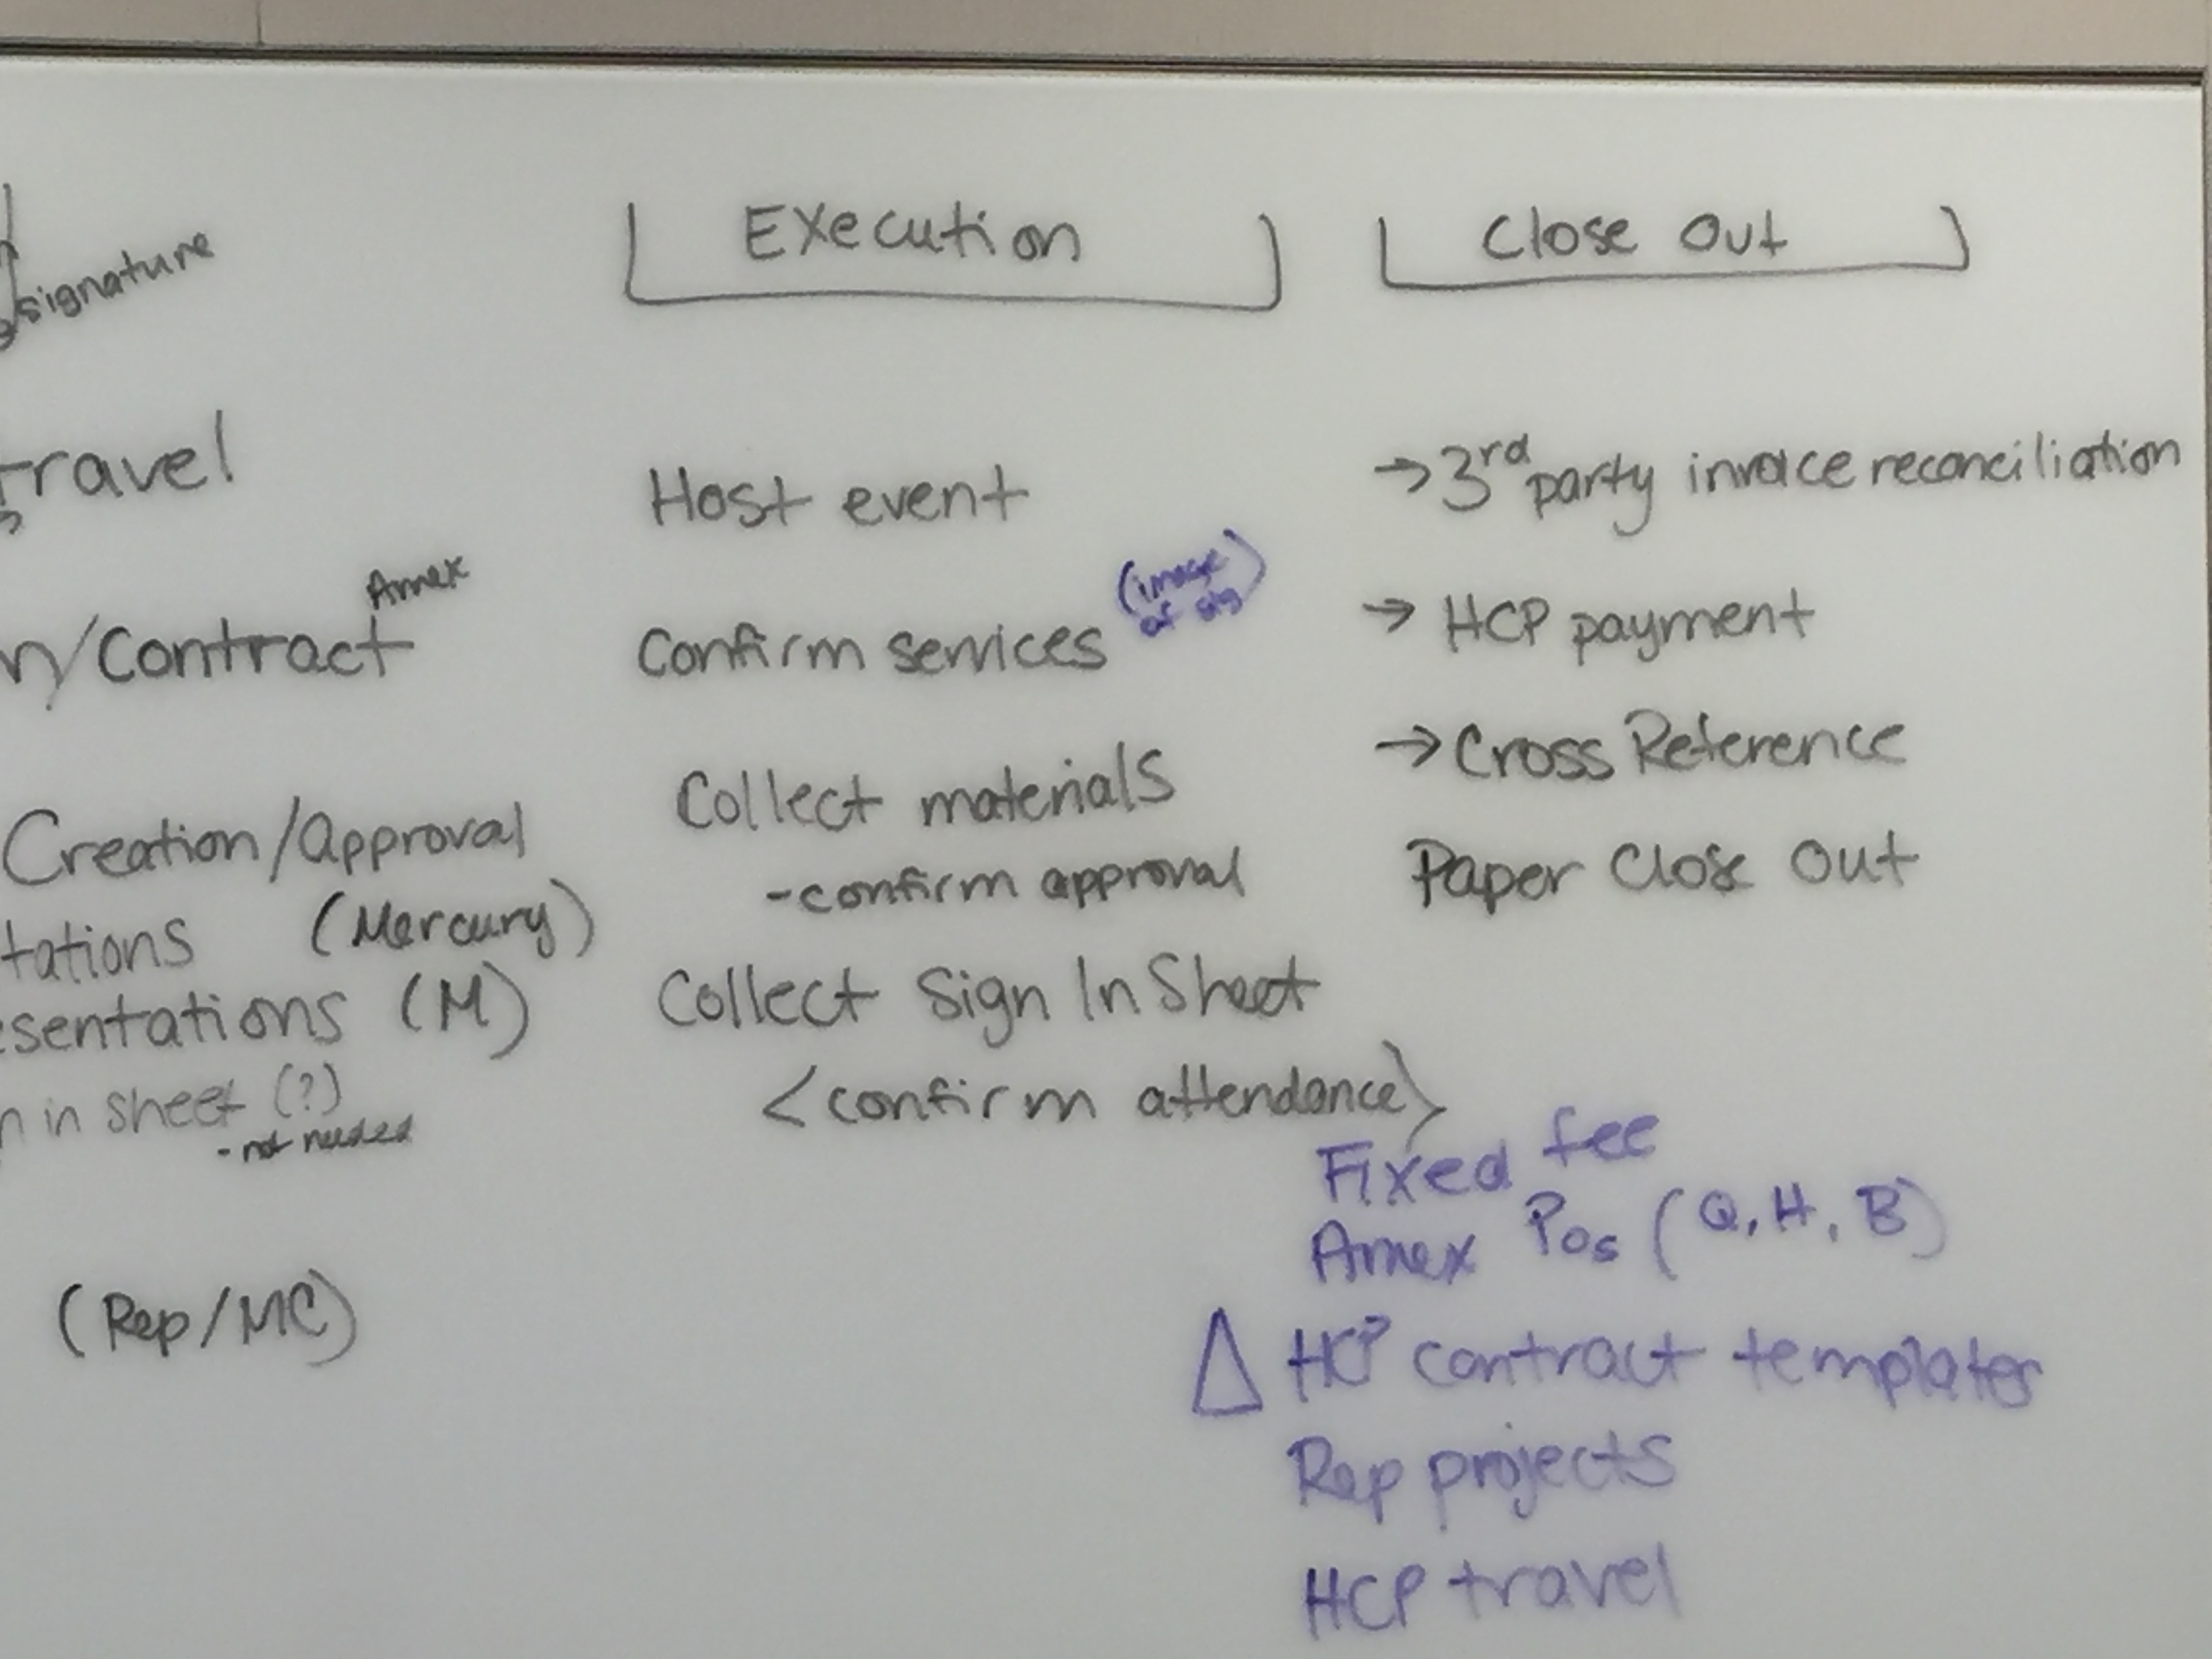 signature
travel
n/Contract Annex
Creation/Approval
tations (Mercury)
esentations (M)
n in sheet (?)
- not needed
(Rep/MC)
Execution
Host event
Confirm services (image
of sig)
Collect materials
- confirm approval
Collect Sign In Sheet
<confirm attendance>
Close Out
→ 3rd party invoice reconciliation
→ HCP payment
→ Cross Reference
Paper Close Out
Fixed fee
Annex Pos (Q, H, B)
Δ HCP contract templates
Rep projects
HCP travel